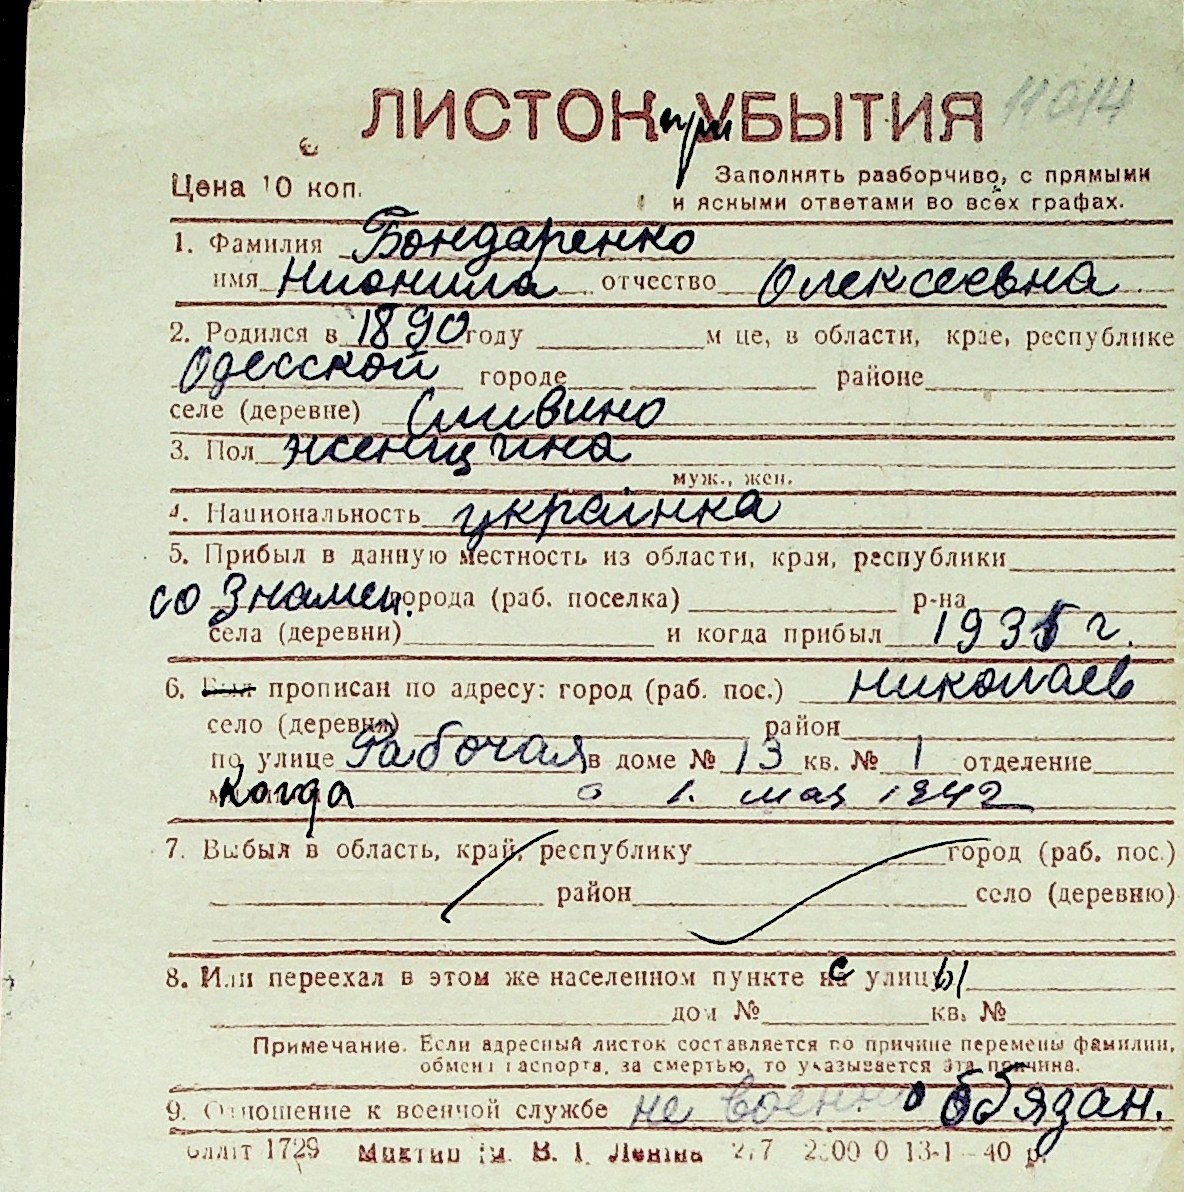 11014
ЛИСТОК при УБЫТИЯ
Цена 10 коп.
Заполнять разборчиво, с прямыми
и ясными ответами во всех графах.
1. Фамилия Бондаренко
имя Нионила отчество Олексеевна
2. Родился в 1890 году м це, в области, крае, республике
Одесской городе районе
селе (деревне) Сливино
3. Пол женщчина
муж., жен.
4. Национальность украінка
5. Прибыл в данную местность из области, края, республики
со Знамен. города (раб. поселка) р-на
села (деревни) и когда прибыл 1935 г.
6. Был прописан по адресу: город (раб. пос.) Николаев
село (деревня) район
по улице Рабочая в доме № 13 кв. № 1 отделение
Когда с 1. мая 1942
7. Выбыл в область, край, республику город (раб. пос.)
район село (деревню)
8. Или переехал в этом же населенном пункте с улицы
дом № кв. №
Примечание. Если адресный листок составляется по причине перемены фамилии,
обмена паспорта, за смертью, то указывается эта причина.
9. Отношение к военной службе не военно обязан.
Облліт 1729 Миктип ім. В. І. Леніна 2000 0 13-1-40 р.